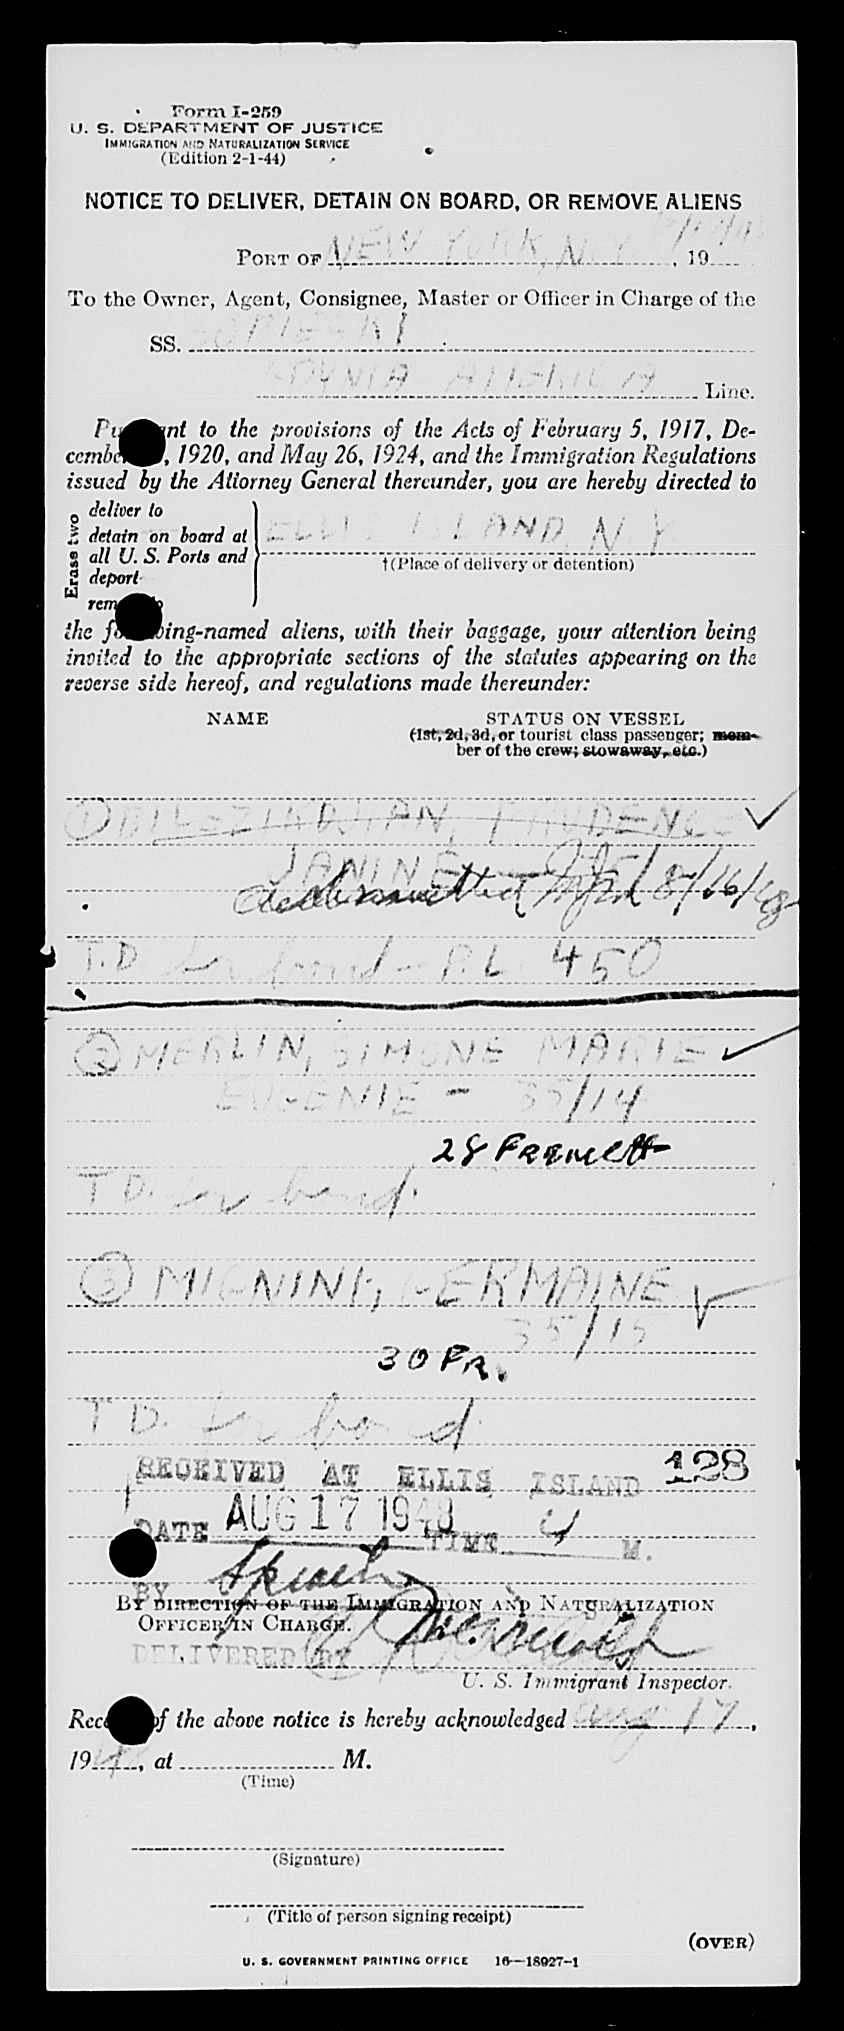 Form I-259
U. S. DEPARTMENT OF JUSTICE
IMMIGRATION AND NATURALIZATION SERVICE
(Edition 2-1-44)
NOTICE TO DELIVER, DETAIN ON BOARD, OR REMOVE ALIENS
PORT OF NEW YORK, N.Y. , 19
To the Owner, Agent, Consignee, Master or Officer in Charge of the
SS. SOBIESKI
GDYNIA AMERICA Line.
nt to the provisions of the Acts of February 5, 1917, De-
cembe , 1920, and May 26, 1924, and the Immigration Regulations
issued by the Attorney General thereunder, you are hereby directed to
Erase two
deliver to
detain on board at
all U. S. Ports and
deport
rem
ELLIS ISLAND, N.Y.
†(Place of delivery or detention)
the f ing-named aliens, with their baggage, your attention being
invited to the appropriate sections of the statutes appearing on the
reverse side hereof, and regulations made thereunder:
NAME
STATUS ON VESSEL
(1st, 2d, 3d, or tourist class passenger; mem-
ber of the crew; stowaway, etc.)
① PRUDENCE
JANINE
admitted 8/16/48
T.D for bond - P.L. 450
② MERLIN, SIMONE MARIE
EUGENIE - 35/14
28 French
T D. for bond.
③ GERMAINE
35/15
30 FR.
T D. for bond.
RECEIVED AT ELLIS ISLAND 128
DATE AUG 17 1948 TIME 4 M.
BY
BY DIRECTION OF THE IMMIGRATION AND NATURALIZATION
OFFICER IN CHARGE.
DELIVERED BY
U. S. Immigrant Inspector.
Rece of the above notice is hereby acknowledged Aug 17,
1948, at M.
(Time)
(Signature)
(Title of person signing receipt)
(OVER)
U. S. GOVERNMENT PRINTING OFFICE 16—18927-1